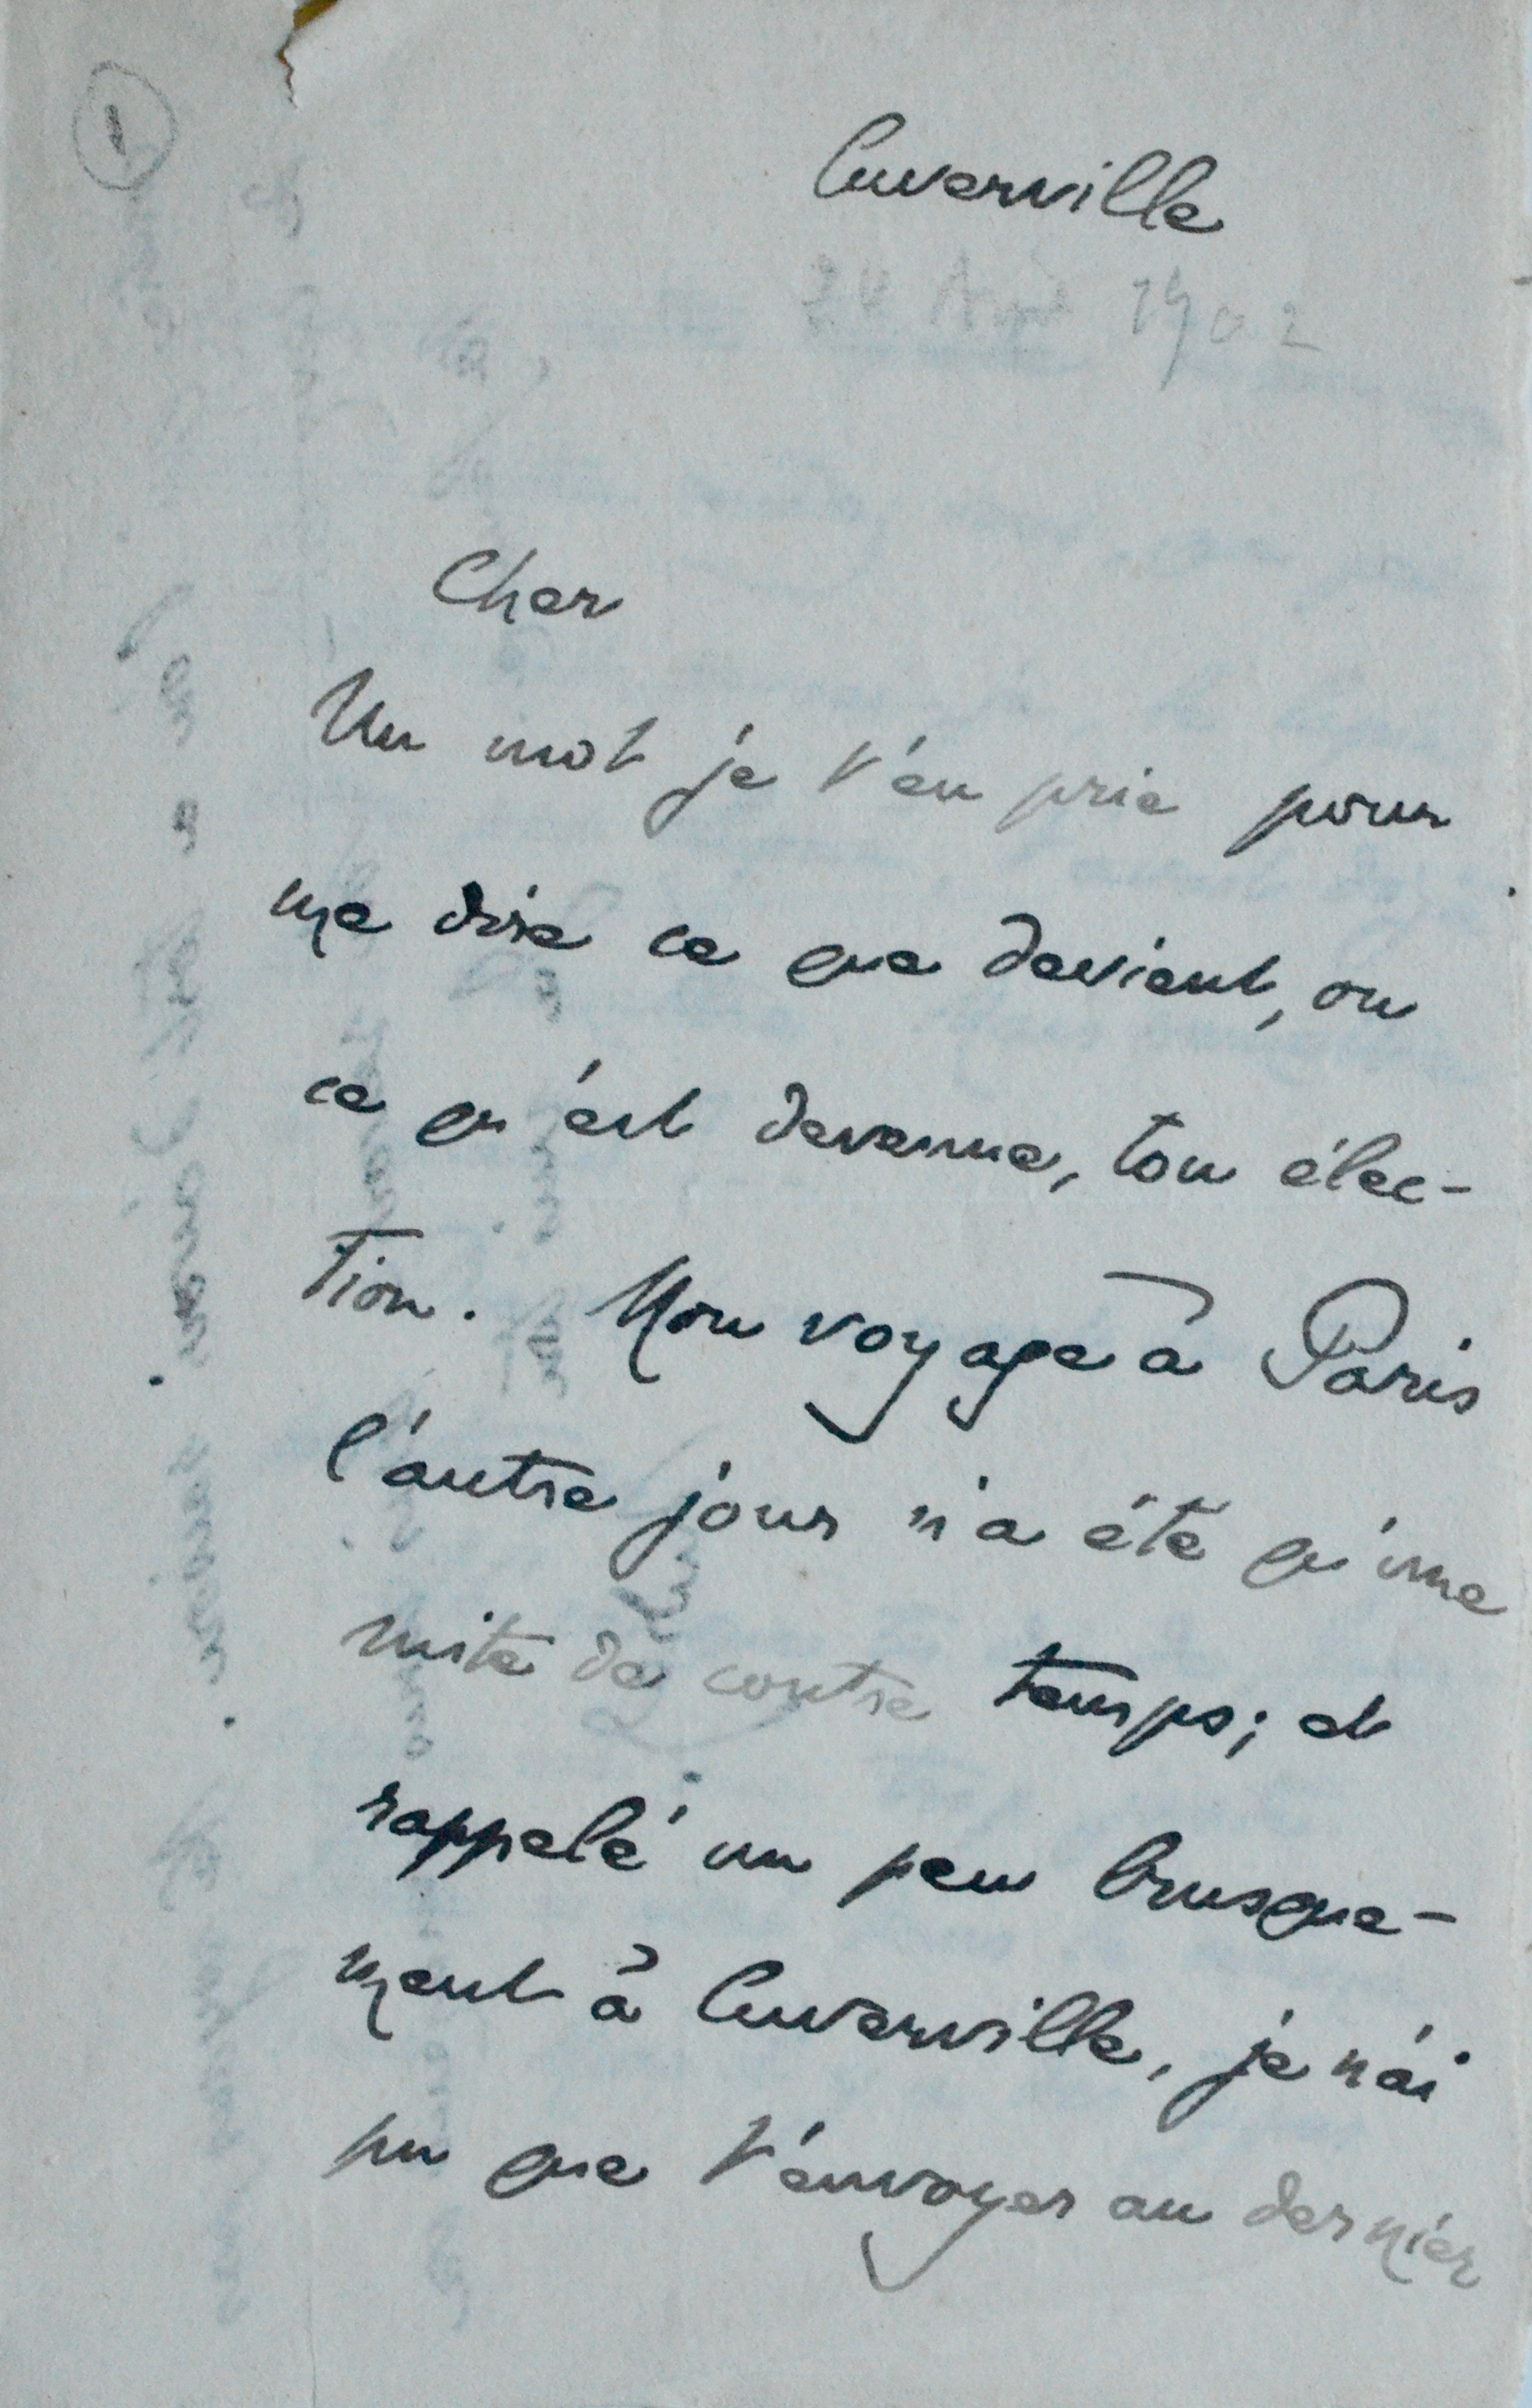 1
Cuverville
24 Avril 1902
Cher
Un mot je t'en prie pour
me dire ce que devient, ou
ce qu'est devenue, ton élec-
tion. Mon voyage à Paris
l'autre jour n'a été qu'une
suite de contre temps; et
rappelé un peu brusque-
ment à Cuverville, je n'ai
pu que t'envoyer au dernier